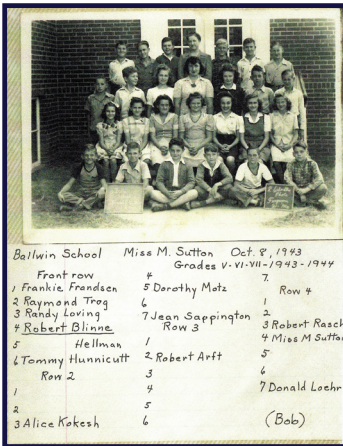 Ballwin School Miss M. Sutton Oct. 8, 1943
Grades V-VI-VII-1943-1944
Front row
1 Frankie Frandsen
2 Raymond Trog
3 Randy Loving
4 Robert Blinne
5 Hellman
6 Tommy Hunnicutt
Row 2
1
2
3 Alice Kokesh
4
5 Dorothy Motz
6
7 Jean Sappington
Row 3
1
2 Robert Arft
3
4
5
6
7.
Row 4
1
2
3 Robert Rasch
4 Miss M Sutton
5
6
7 Donald Loehr
(Bob)